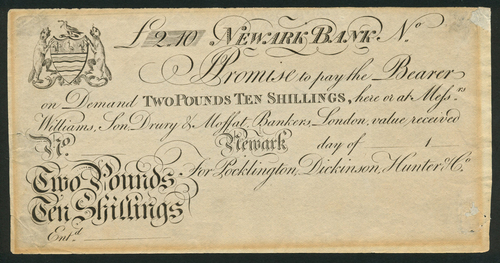 £2.10 NEWARK BANK. No
Promise to pay the Bearer
on Demand TWO POUNDS TEN SHILLINGS, here or at Messrs
Williams, Son, Drury & Moffat, Bankers, London, value received
No. Newark day of 1
Two Pounds For Pocklington, Dickinson, Hunter & Co
Ten Shillings
Entd